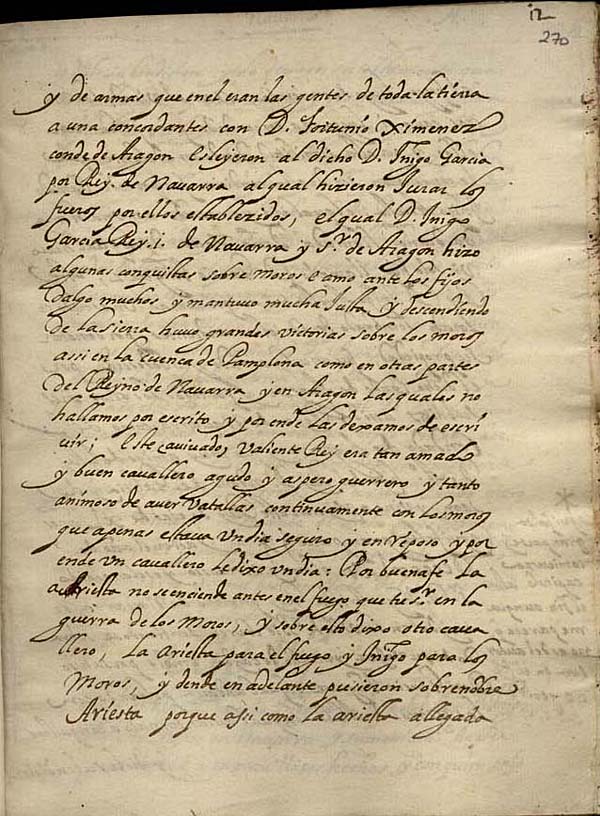 12
270
y de armas que en el eran las gentes de toda la tierra
a una concordantes con D. Fortunio Ximenez
conde de Aragon esleyeron al dicho D. Iñigo Garcia
por Rey de Navarra al qual hizieron Jurar los
fueros por ellos establezidos, el qual D. Inigo
Garcia Rey. 1. de Navarra y Sr. de Aragon hizo
algunas conquistas sobre moros e amo ante los fijos
dalgo muchos y mantuvo mucha Justa y descendiendo
de la sierra huvo grandes victorias sobre los moros
assi en la cuenca de Pamplona como en otras partes
del Reyno de Navarra y en Aragon las quales no
hallamos por escrito y por ende las dexamos de escri
vir; Este avivado, valiente Rey era tan amado
y buen cavallero agudo y aspero guerrero y tanto
animoso de aver vatallas continuamente con los moros
que apenas estava un dia seguro y en reposo y por
ende un cavallero le dixo un dia: Por buena fe La
Ariesta no se enciende antes en el fuego que tu Sr. en la
guerra de los Moros, y sobre esto dixo otro cava
llero, La ariesta para el fuego y Iñigo para los
Moros, y dende en adelante pusieron sobrenõbre
Ariesta porque assi como la ariesta allegada